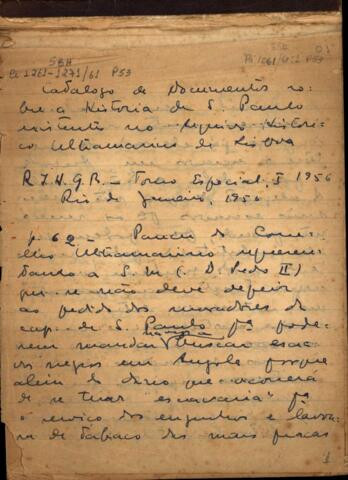 SBH
Pi 1261-1271/61 P53
01
Catalogo de Documentos so-
bre a Historia de S. Paulo
existentes no Arquivo Histori-
co Ultramarino de Lisboa
R.I.H.G.B. – Tomo Especial I 1956
Rio de Janeiro, 1956
p. 62 – Parecer do Conse-
lho Ultramarino representan-
tando a S. M. (D. Pedro II)
que se não deve deferir
ao pedido dos moradores da
cap. de S. Paulo pª pode-
rem mandar buscar esca-
vos negros em Angola porque
alem do dano que ocorrerá
de se tirar "escravaria" pª
o serviço dos engenhos e lavou-
ra de tabaco das mais praças
1